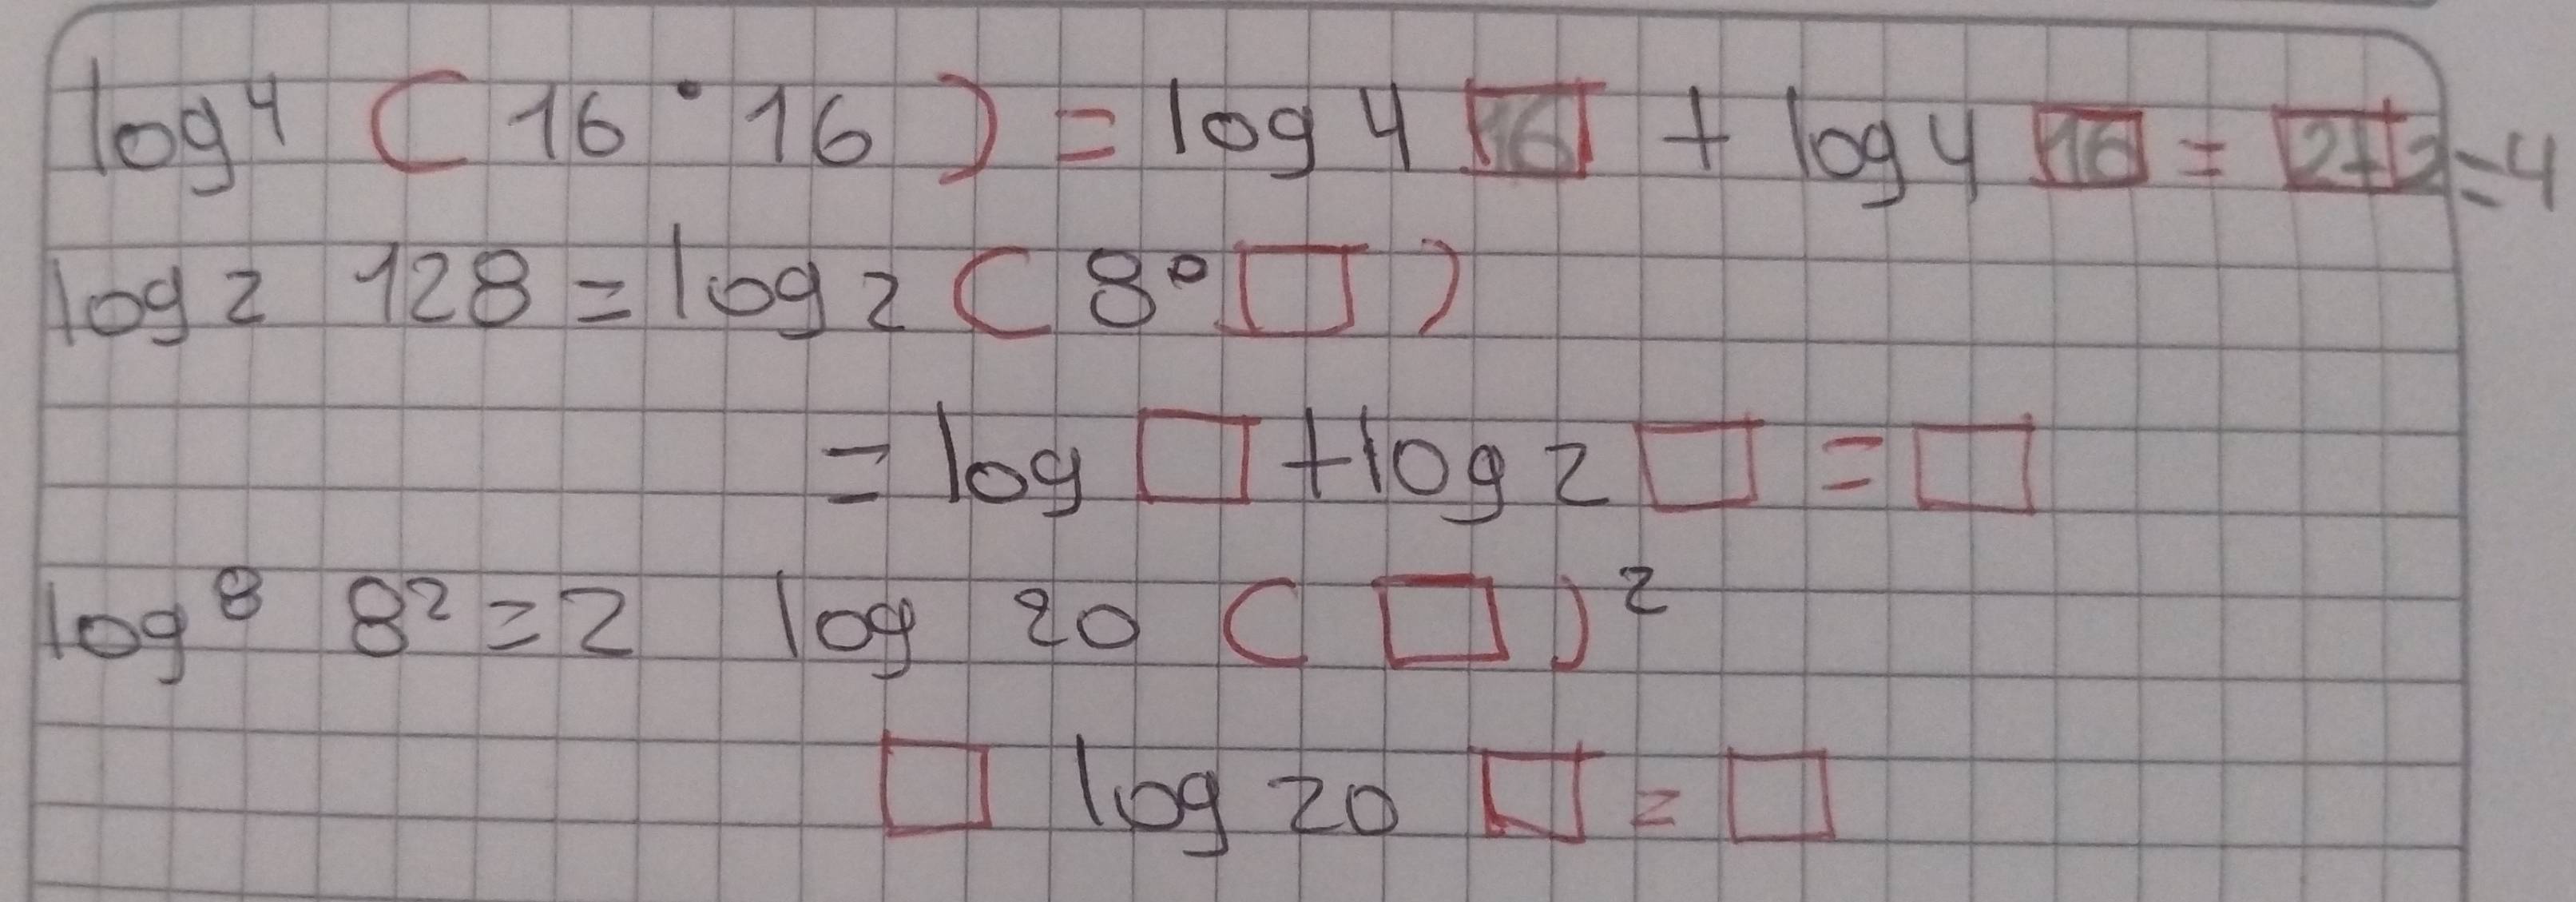 log⁴ ( 16 · 16 ) = log 4 16 + log 4 16 = 2+2 = 4
log 2 128 = log 2 ( 8 · □ )
= log □ + log 2 □ = □
log⁸ 8² = 2 log 20 ( □ )²
□ log 20 □ = □